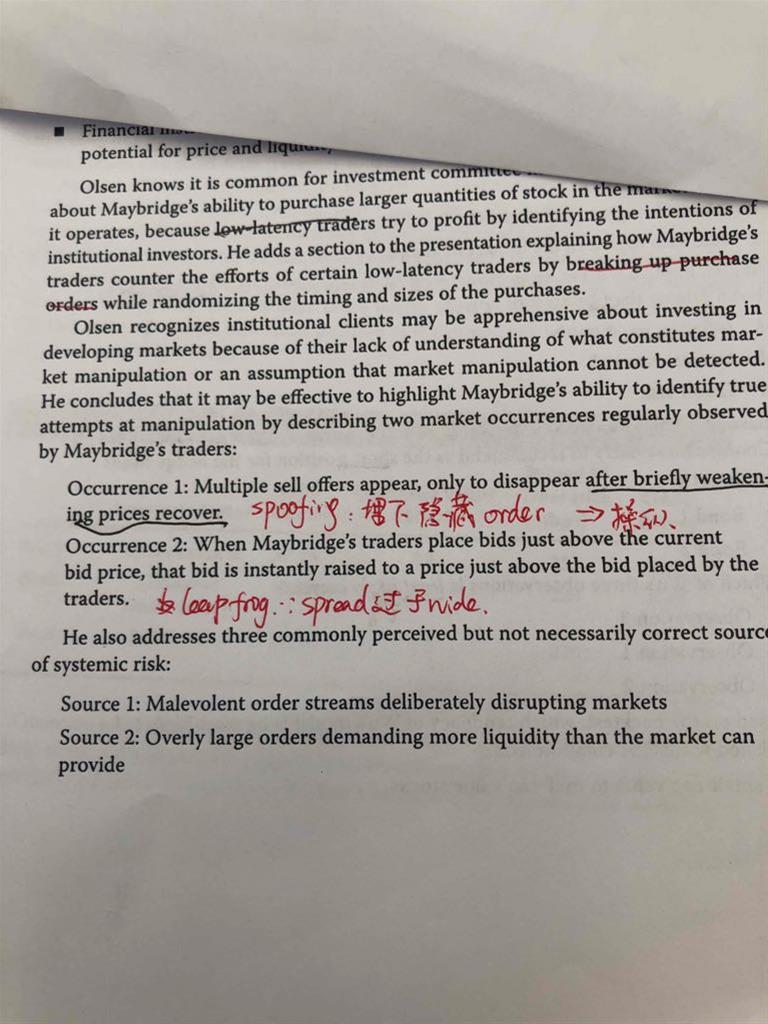 ■ Financial
potential for price and
Olsen knows it is common for investment committee
about Maybridge's ability to purchase larger quantities of stock in the
it operates, because low-latency traders try to profit by identifying the intentions of
institutional investors. He adds a section to the presentation explaining how Maybridge's
traders counter the efforts of certain low-latency traders by breaking up purchase
orders while randomizing the timing and sizes of the purchases.
Olsen recognizes institutional clients may be apprehensive about investing in
developing markets because of their lack of understanding of what constitutes mar-
ket manipulation or an assumption that market manipulation cannot be detected.
He concludes that it may be effective to highlight Maybridge's ability to identify true
attempts at manipulation by describing two market occurrences regularly observed
by Maybridge's traders:
Occurrence 1: Multiple sell offers appear, only to disappear after briefly weaken-
ing prices recover. spoofing: 埋下隐藏 order ⇒ 操纵、
Occurrence 2: When Maybridge's traders place bids just above the current
bid price, that bid is instantly raised to a price just above the bid placed by the
traders. leapfrog ∵ spread过于wide.
He also addresses three commonly perceived but not necessarily correct source
of systemic risk:
Source 1: Malevolent order streams deliberately disrupting markets
Source 2: Overly large orders demanding more liquidity than the market can
provide